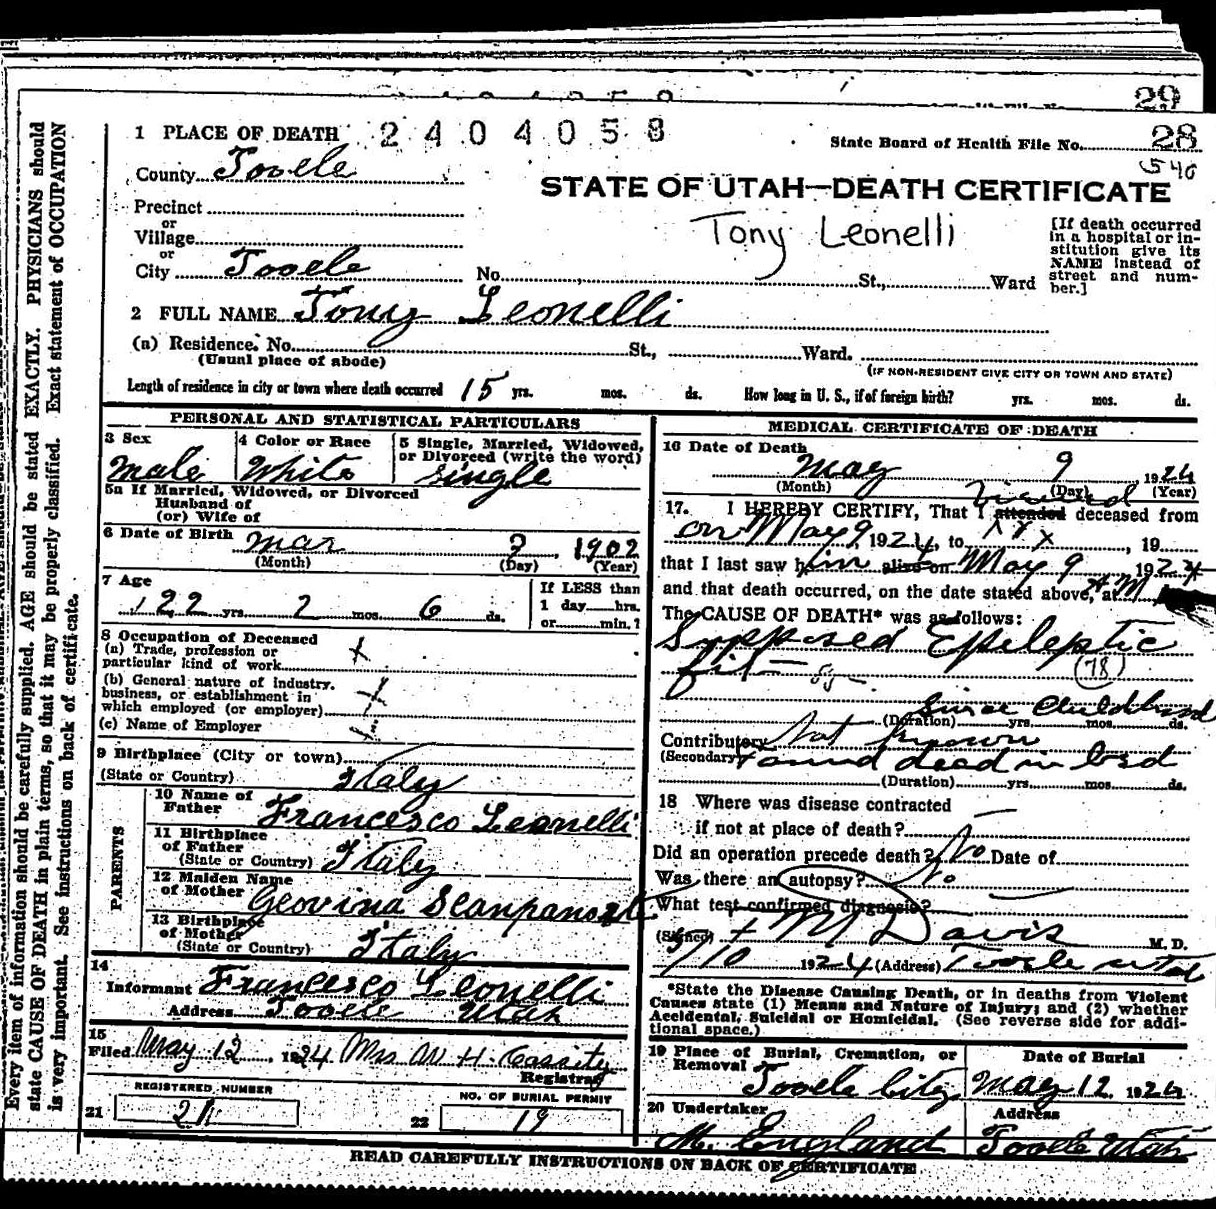 29
1 PLACE OF DEATH 2404058
State Board of Health File No. 28
540
County Tooele
STATE OF UTAH—DEATH CERTIFICATE
Precinct
or
Village
or
City Tooele
Tony Leonelli
No. St., Ward
[If death occurred in a hospital or institution give its NAME instead of street and number.]
2 FULL NAME Tony Leonelli
(a) Residence. No. St., Ward.
(Usual place of abode)
(IF NON-RESIDENT GIVE CITY OR TOWN AND STATE)
Length of residence in city or town where death occurred 15 yrs. mos. ds. How long in U. S., if of foreign birth? yrs. mos. ds.
PERSONAL AND STATISTICAL PARTICULARS
3 Sex
Male
4 Color or Race
White
5 Single, Married, Widowed, or Divorced (write the word)
Single
5a If Married, Widowed, or Divorced
Husband of
(or) Wife of
6 Date of Birth Mar 1902
(Month) (Day) (Year)
7 Age
22 yrs. 2 mos. 6 ds.
If LESS than
1 day hrs.
or min.?
8 Occupation of Deceased
(a) Trade, profession or
particular kind of work x
(b) General nature of industry,
business, or establishment in
which employed (or employer) x
(c) Name of Employer
9 Birthplace (City or town)
(State or Country) Italy
PARENTS
10 Name of Father Francesco Leonelli
11 Birthplace of Father
(State or Country) Italy
12 Maiden Name of Mother Geovina
13 Birthplace of Mother
(State or Country) Italy
14
Informant Francesco Leonelli
Address Tooele Utah
15
Filed May 12, 1924 Mrs W H Cassity
Registrar
REGISTERED NUMBER
21
NO. OF BURIAL PERMIT
22 19
MEDICAL CERTIFICATE OF DEATH
16 Date of Death
May 9 1924
(Month) (Day) (Year)
viewed
17. I HEREBY CERTIFY, That I attended deceased from
on May 9, 1924, to x x x, 19
that I last saw him alive on May 9 1924
and that death occurred, on the date stated above, at M
The CAUSE OF DEATH* was as follows:
Supposed Epileptic
fit
(78)
Since Childhood
(Duration) yrs. mos. ds.
Contributory Not Known
(Secondary) Found dead in bed
(Duration) yrs. mos. ds.
18 Where was disease contracted
if not at place of death?
Did an operation precede death? No Date of
Was there an autopsy? No
What test confirmed diagnosis?
(Signed) M Davis M. D.
5/10 1924 (Address) Tooele Utah
*State the Disease Causing Death, or in deaths from Violent
Causes state (1) Means and Nature of Injury; and (2) whether
Accidental, Suicidal or Homicidal. (See reverse side for additional space.)
19 Place of Burial, Cremation, or Removal
Tooele City
Date of Burial
May 12, 1924
20 Undertaker
M. England
Address
Tooele Utah
READ CAREFULLY INSTRUCTIONS ON BACK OF CERTIFICATE
Every item of information should be carefully supplied. AGE should be stated EXACTLY. PHYSICIANS should
state CAUSE OF DEATH in plain terms, so that it may be properly classified. Exact statement of OCCUPATION
is very important. See instructions on back of certificate.